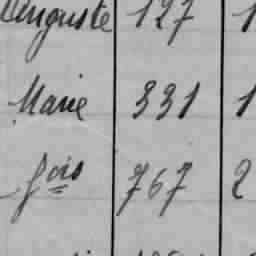 Auguste 127 1
Marie 331 1
fois 767 2